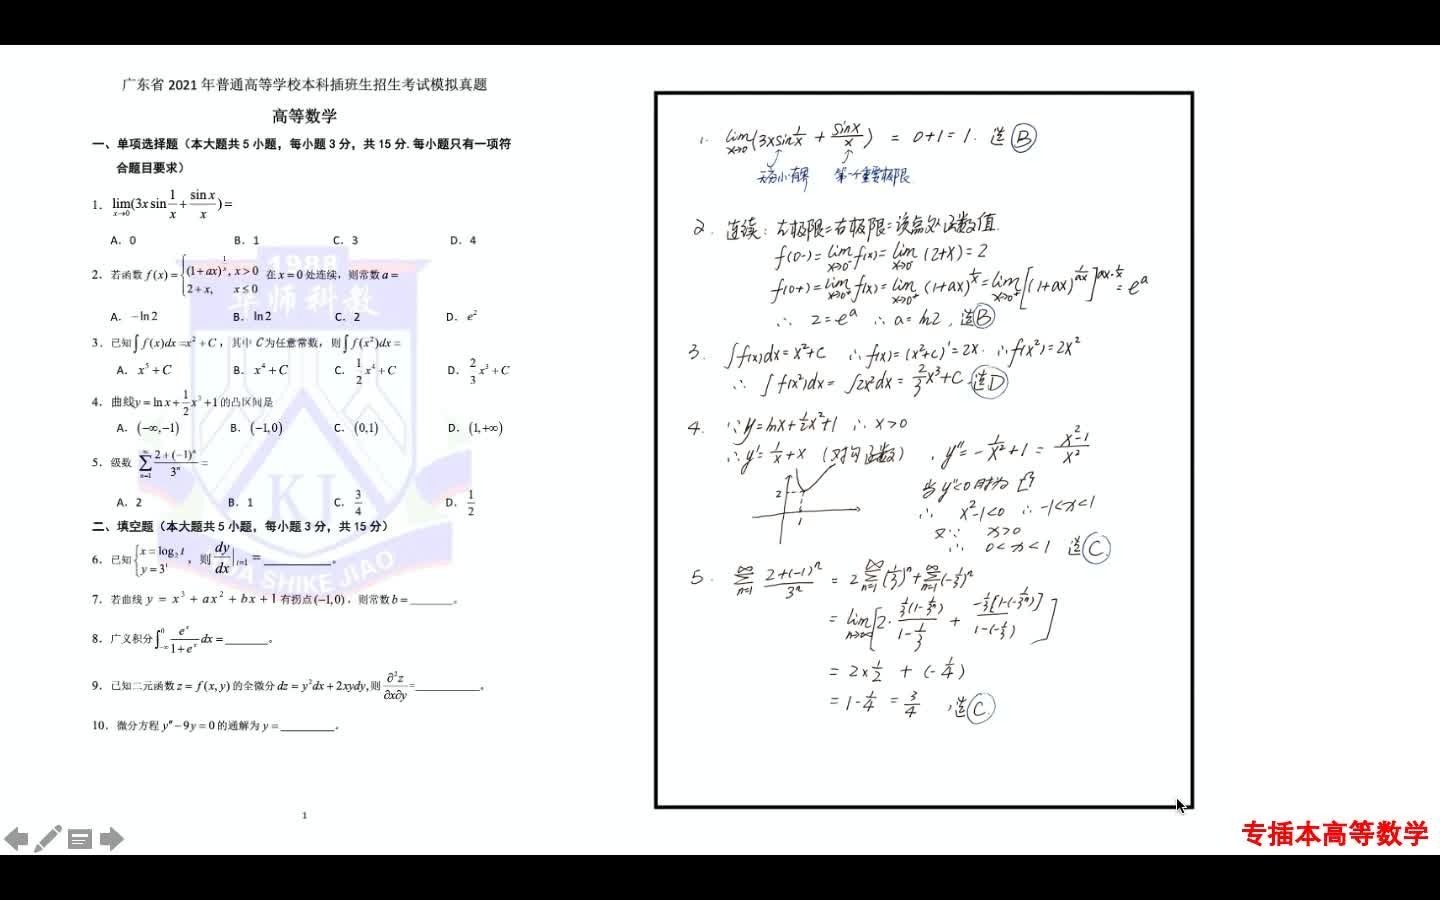 广东省 2021 年普通高等学校本科插班生招生考试模拟真题
高等数学
一、单项选择题（本大题共 5 小题，每小题 3 分，共 15 分.每小题只有一项符
合题目要求）
1. lim_{x→0}(3x sin 1/x + sin x/x) =
A. 0 B. 1 C. 3 D. 4
2. 若函数 f(x) = { (1+ax)^{1/x}, x>0
2+x, x≤0 在 x=0 处连续，则常数 a =
A. −ln2 B. ln2 C. 2 D. e²
3. 已知∫f(x)dx =x²+C，其中 C 为任意常数，则∫f(x²)dx =
A. x⁵+C B. x⁴+C C. 1/2 x⁴+C D. 2/3 x³+C
4. 曲线y=ln x+1/2 x²+1 的凸区间是
A. (−∞,−1) B. (−1,0) C. (0,1) D. (1,+∞)
5. 级数 ∑_{n=1}^{∞} (2+(−1)ⁿ)/3ⁿ =
A. 2 B. 1 C. 3/4 D. 1/2
二、填空题（本大题共 5 小题，每小题 3 分，共 15 分）
6. 已知{ x=log₃ t
y=3^t ，则 dy/dx|_{t=1} = ________。
7. 若曲线 y = x³ + ax² + bx + 1 有拐点(−1,0)，则常数 b = ______。
8. 广义积分∫_{−∞}^{0} e^x/(1+e^x) dx = ______。
9. 已知二元函数 z = f(x,y) 的全微分 dz = y²dx + 2xydy,则 ∂²z/∂x∂y = ________。
10. 微分方程 y″−9y=0 的通解为 y = ________。
1
1988
华师科教
KJ
HUA SHIKE JIAO
1. lim_{x→0}(3x sin 1/x + sin x/x) = 0+1=1. 选 B
无穷小·有界 第一个重要极限
2. 连续：左极限=右极限=该点处函数值.
f(0-)=lim_{x→0⁻} f(x)=lim_{x→0⁻}(2+x)=2
f(0+)=lim_{x→0⁺} f(x)=lim_{x→0⁺}(1+ax)^{1/x}=lim_{x→0⁺}[(1+ax)^{1/ax}]^{ax·1/x}=e^a
∴ 2=e^a ∴ a=ln2, 选B
3. ∫f(x)dx=x²+C ∴f(x)=(x²+c)'=2x. ∴f(x²)=2x²
∴ ∫f(x²)dx=∫2x²dx=2/3x³+C 选D
4. ∵y=lnx+1/2x²+1 ∴x>0
∴y'=1/x+x (对勾函数) , y″=-1/x²+1=(x²-1)/x²
2
1
当y″<0时为凸
∴ x²-1<0 ∴ -1<x<1
又∵ x>0
∴ 0<x<1 选C
5. ∑_{n=1}^{∞} (2+(-1)ⁿ)/3ⁿ = 2∑_{n=1}^{∞}(1/3)ⁿ+∑_{n=1}^{∞}(-1/3)ⁿ
= lim_{n→∞}[2·(1/3(1-1/3ⁿ))/(1-1/3) + (-1/3[1-(-1/3ⁿ)])/(1-(-1/3))]
= 2×1/2 + (-1/4)
= 1-1/4 = 3/4 , 选C
专插本高等数学